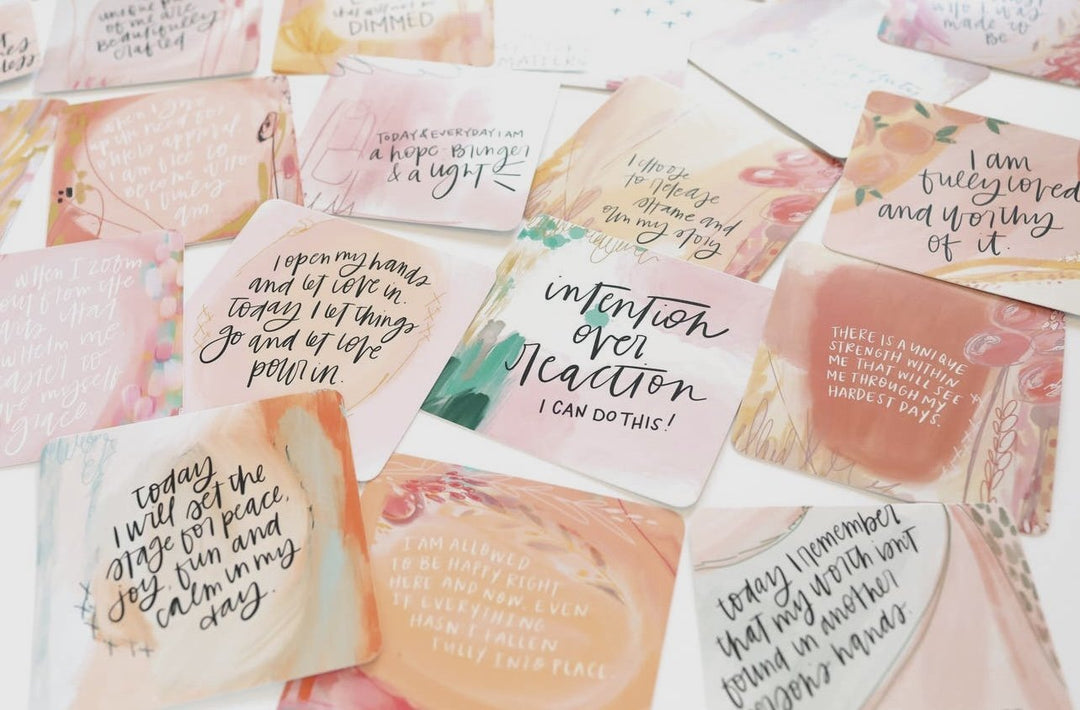 of me are
beautifully
crafted
DIMMED
MATTERS
made to
be
approval
I am free to
become who
I truly
am.
TODAY & EVERYDAY I AM
a hope-bringer
& a light
I choose
to release
shame and
own my story
I am
fully loved
and worthy
of it.
when I zoom
out from the
that
me
myself
grace.
I open my hands
and let love in.
Today I let things
go and let love
pour in.
intention
over
reaction
I CAN DO THIS!
THERE IS A UNIQUE
STRENGTH WITHIN
ME THAT WILL SEE
ME THROUGH MY
HARDEST DAYS.
today
I will set the
stage for peace,
joy, fun and
calm in my
day.
I AM ALLOWED
TO BE HAPPY RIGHT
HERE AND NOW. EVEN
IF EVERYTHING
HASN'T FALLEN
FULLY INTO PLACE.
today I remember
that my worth isn't
found in another
persons hands.